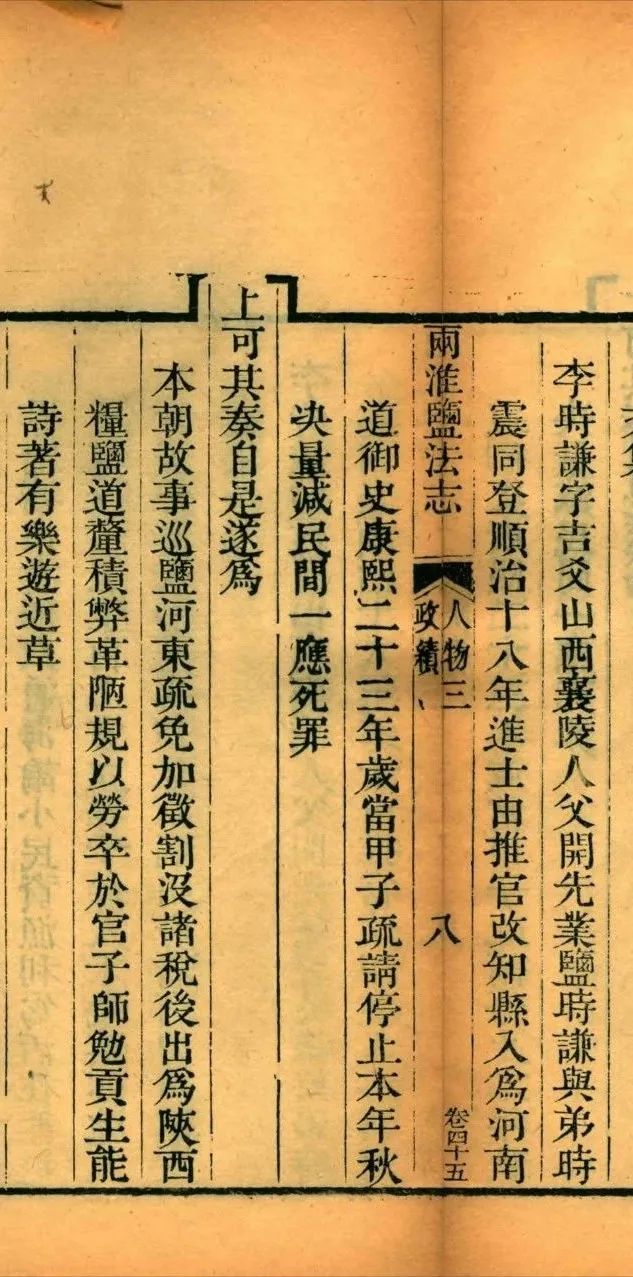 李時謙字吉爻山西襄陵人父開先業鹽時謙與弟時
震同登順治十八年進士由推官改知縣入爲河南
兩淮鹽法志
人物三
政績
八
卷四十五
道御史康熙二十三年歲當甲子疏請停止本年秋
决量減民間一應死罪
上可其奏自是遂爲
本朝故事巡鹽河東疏免加徵割沒諸稅後出爲陝西
糧鹽道釐積弊革陋規以勞卒於官子師勉貢生能
詩著有樂遊近草